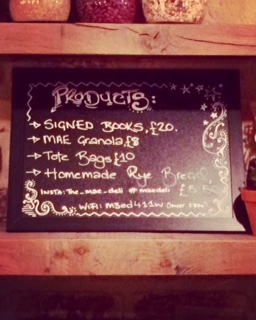 Products:
→ SIGNED BOOKS, £20.
→ MAE Granola, £8
→ Tote Bags £10
→ Homemade Rye Bread,
INSTA: The_mae_deli # maedeli £5.50
WiFi: